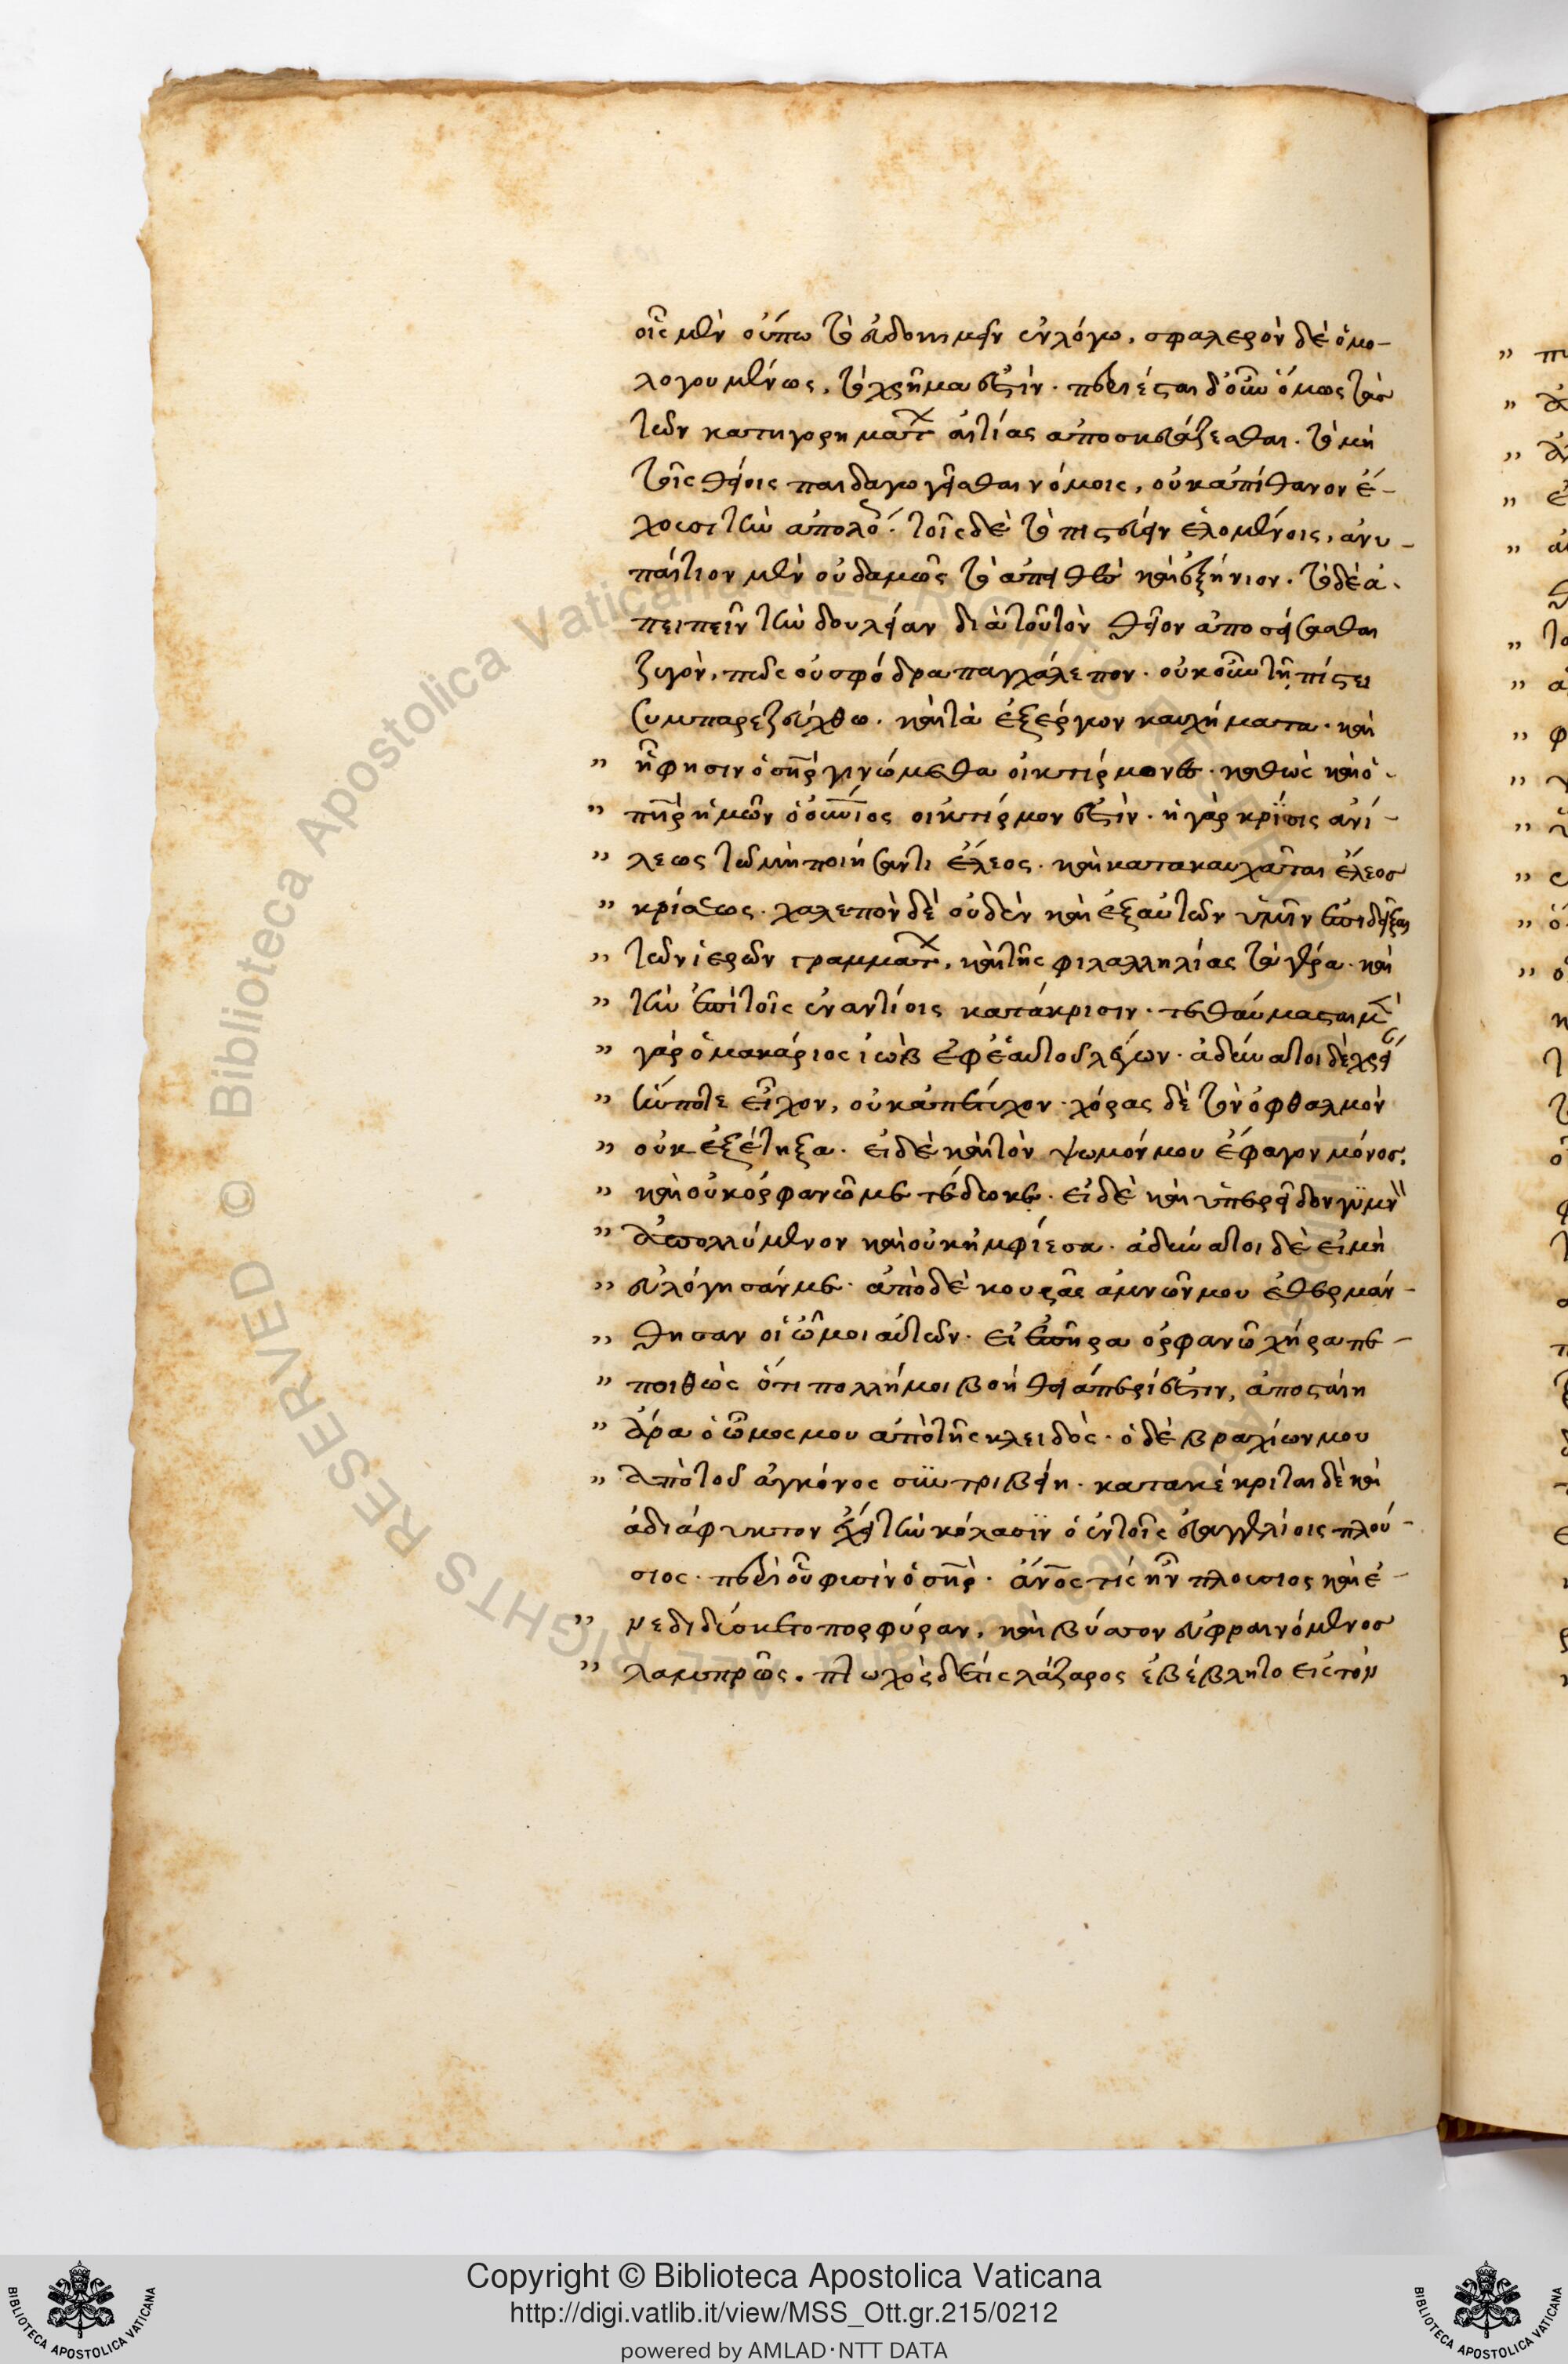 οἷς μὲν οὔπω τὸ εἰδέναι μεν ἐν λόγω, σφαλερὸν δὲ ὁμο-
λογουμένως, τὸ χρῆμα ἐστίν. περιέσται δ' οὖν ὅμως τὰς
τῶν κατηγορημάτ αἰτίας ἀποσκευάζεσθαι. τὸ μὴ
τοῖς θείοις παιδαγωγεῖσθαι νόμοις, οὐκ ἀπίθανον ἔ-
χουσι τὴν ἀπολο. τοῖς δὲ τὸ πιστεύειν ἑλομένοις, ἀνυ-
παίτιον μὲν οὐδαμῶς τὸ ἀπειθὲς καὶ δυσήνιον. τὸ δὲ ἀ-
πειπεῖν τὴν δουλείαν διὰ τοῦ τὸν θεῖον ἀποσείσασθαι
ζυγὸν, πῶς οὐ σφόδρα παγχάλεπον. οὐκοῦν τῇ πίστει
συμπαρεζεύχθω. καὶ τὰ ἐξ ἔργων καυχήματα. καὶ
” ᾗ φησιν ὁ σηρ γινώμεθα οἰκτίρμονες. καθὼς καὶ ὁ
” πηρ ἡμῶν ὁ οὐνιος οἰκτίρμων ἐστίν. ἡ γὰρ κρίσις ἀνί-
” λεως τῶ μὴ ποιήσαντι ἔλεος. καὶ κατακαυχᾶται ἔλεος
” κρίσεως. χαλεπὸν δὲ οὐδὲν καὶ ἐξ αὐτῶν ὑμῖν ἐπιδεῖξαι
” τῶν ἱερῶν γραμμάτ, καὶ τῆς φιλαλληλίας τὰ γέρα. καὶ
” τὴν ἐπὶ τοῖς ἐναντίοις κατάκρισιν. τεθαύμασται μὲ
” γὰρ ὁ μακάριος ἰὼβ ἐφ' ἑαυτοῦ λέγων. ἀδύνατοι δὲ χρεί
” ἥν ποτε εἶχον, οὐκ ἀπέτυχον. χήρας δὲ τὸν ὀφθαλμὸν
” οὐκ ἐξέτηξα. εἰ δὲ καὶ τὸν ψωμόν μου ἔφαγον μόνος.
” καὶ οὐκ ὀρφανῶ μετέδωκα. εἰ δὲ καὶ ὑπερεῖδον γϋμν
” ἀπολλύμενον καὶ οὐκ ἠμφίεσα. ἀδύνατοι δὲ εἰ μὴ
” εὐλόγησάν με. ἀπὸ δὲ κουρᾶς ἀμνῶν μου ἐθερμάν-
” θησαν οἱ ὦμοι αὐτῶν. εἰ ἐπῆρα ὀρφανῶ χῆρα πε-
” ποιθὼς ὅτι πολλή μοι βοήθεια περίεστιν, ἀποσταίη
” ἄρα ὁ ὦμος μου ἀπὸ τῆς κλειδὸς. ὁ δὲ βραχίων μου
” ἀπὸ τοῦ ἀγκόνος συντριβείη. κατακέκριται δὲ καὶ
ἀδιάφυκτον ἔχει τὴν κόλασϊν ὁ ἐν τοῖς εὐαγγελίοις πλού-
σιος. περὶ οὗ φησὶν ὁ σηρ. ἄνος τίς ἦν πλούσιος καὶ ἐ-
” νεδιδύσκετο πορφύραν, καὶ βύσσον εὐφραινόμενος
” λαμπρῶς. πτωχὸς δέ τις λάζαρος ἐβέβλητο εἰς τὸν
Copyright © Biblioteca Apostolica Vaticana
http://digi.vatlib.it/view/MSS_Ott.gr.215/0212
powered by AMLAD·NTT DATA